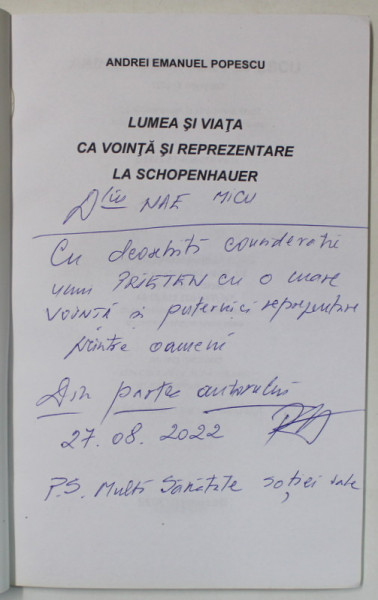 ANDREI EMANUEL POPESCU
LUMEA ŞI VIAŢA
CA VOINŢĂ ŞI REPREZENTARE
LA SCHOPENHAUER
Dlui NAE MICU
Cu deosebită considerație
unui PRIETEN cu o mare
VOINȚĂ și puternici reprezentare
printre oameni
Din partea autorului
27.08.2022
P.S. Multă Sănătate soției tale